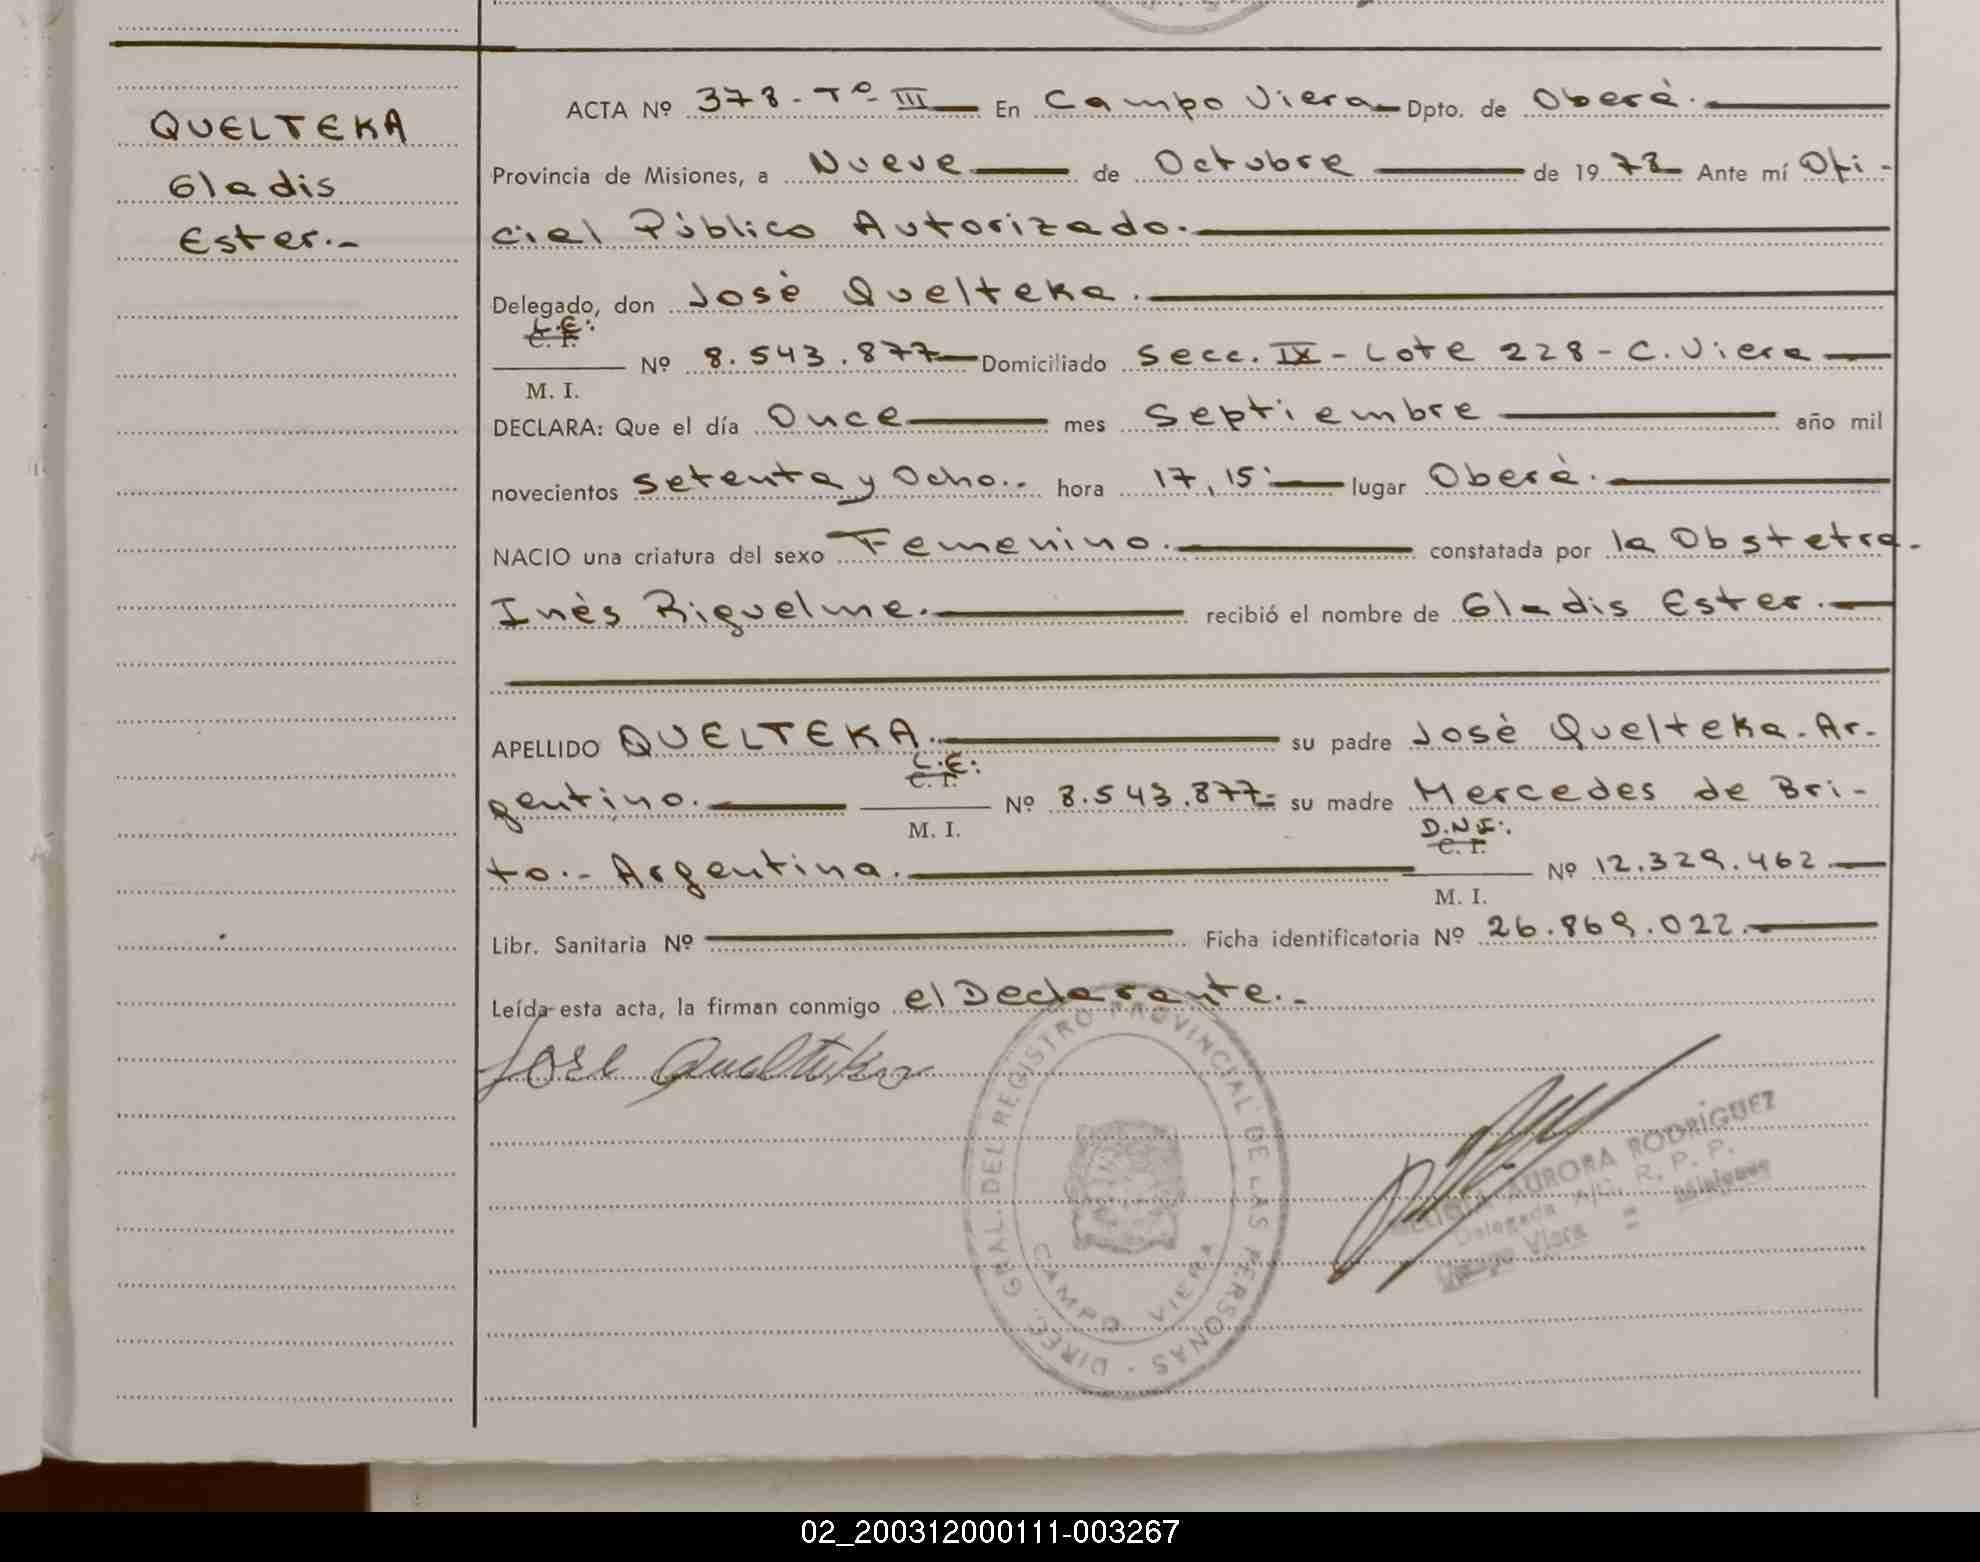 QUELTEKA
Gladis
Ester.-
ACTA Nº 378 - Tº III En Campo Viera Dpto. de Oberá.
Provincia de Misiones, a Nueve de Octubre de 1978 Ante mí Ofi-
cial Público Autorizado.
Delegado, don José Quelteka.
L.E:
C. I.
Nº 8.543.877 Domiciliado Secc. IX - Lote 228 - C. Viera
M. I.
DECLARA: Que el día Once mes Septiembre año mil
novecientos Setenta y Ocho.. hora 17,15' lugar Oberá.
NACIO una criatura del sexo Femenino. constatada por la Obstetra.
Inés Riquelme. recibió el nombre de Gladis Ester.
APELLIDO QUELTEKA. su padre José Quelteka. Ar-
L.E:
C. I.
gentino. Nº 8.543.877- su madre Mercedes de Bri-
M. I.
D.N.I:
C. I.
to.- Argentina. Nº 12.329.462
M. I.
Libr. Sanitaria Nº Ficha identificatoria Nº 26.869.022.
Leída esta acta, la firman conmigo el Declarante.-
Jose Quelteka
DIREC. GRAL. DEL REGISTRO PROVINCIAL DE LAS PERSONAS -
CAMPO VIERA
AURORA RODRÍGUEZ
Delegada A/C. R. P. P.
Campo Viera = Misiones
02_200312000111-003267